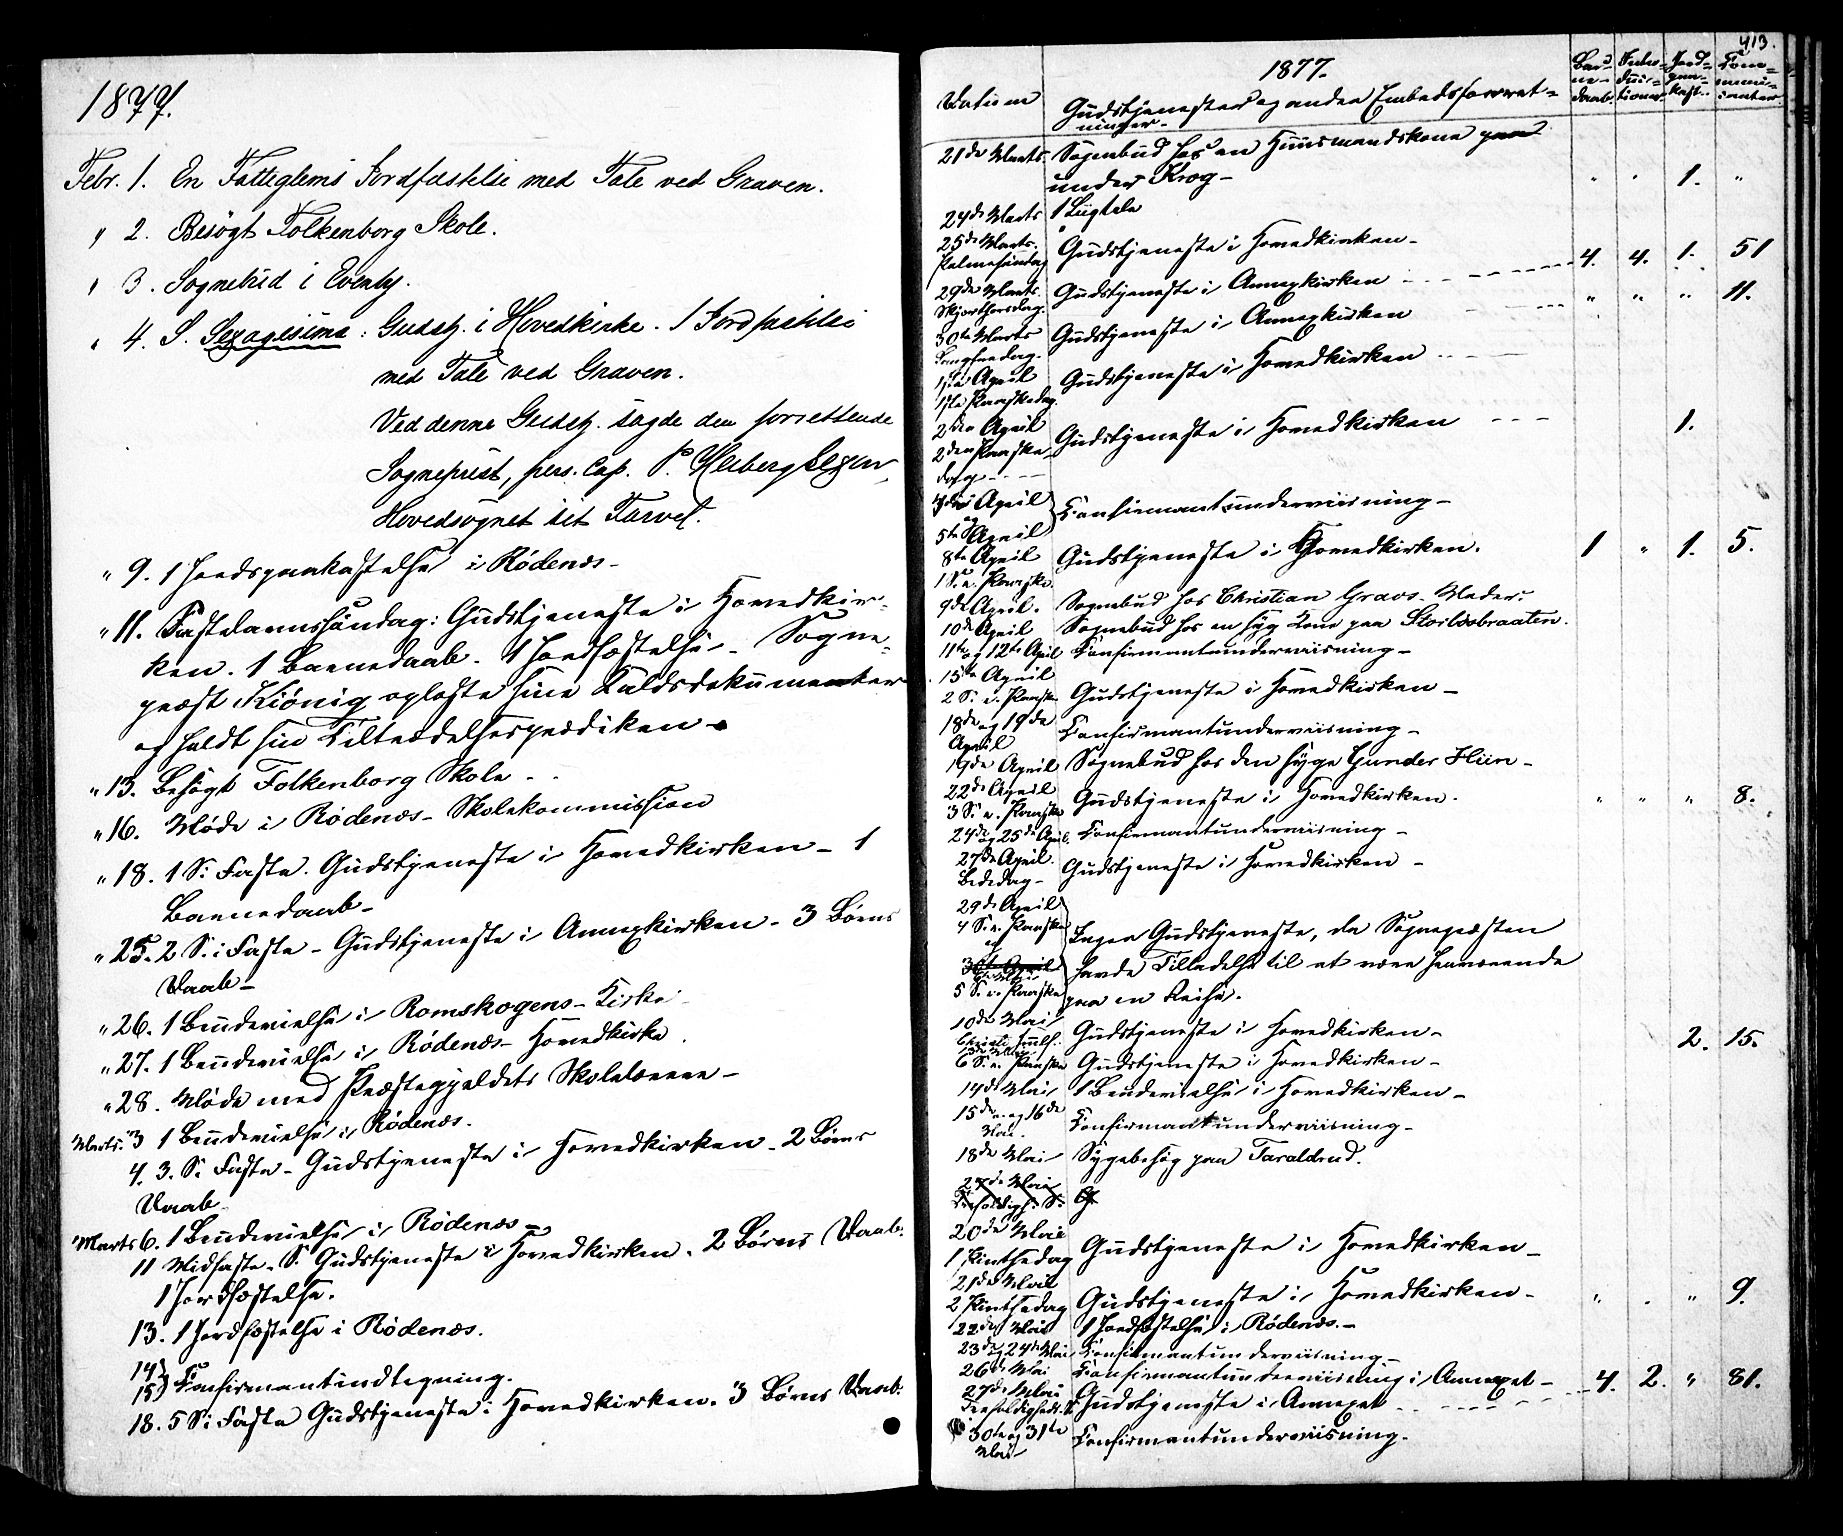 1877.
Febr. 1. En Fatteglems Jordfæstelse med Tale ved Graven.
" 2. Besögt Folkenborg Skole.
" 3. Sognebud i Evenby.
" 4. S. Sexagesima: Gudstj. i Hovedkirke. 1 Jordfæstelse
med Tale ved Graven.
Ved denne Gudstj. sagde den forrettende
Sogneprest, pers. Cap. P.
Hovedsognet sit Farvel.
" 9. 1 Jordpaakastelse i Rødenæs-
" 11. Fastelavnssöndag: Gudstjeneste i Hovedkir-
ken. 1 Barnedaab. 1 Jordfæstelse. Sogne-
præst Kiönig oplæste sine Kaldsdokumenter
og holdt sin Tiltrædelsesprædiken-
" 13. Besögt Folkenborg Skole -
" 16. Møde i Rødenæs- Skolekommission
" 18. 1 S. i Faste. Gudstjeneste i Hovedkirken- 1
Barnedaab-
" 25. 2 S. i Faste- Gudstjeneste i Annexkirken- 3 Børns
Daab-
" 26. 1 Brudevielse i Romskogens- Kirke
" 27. 1 Brudevielse i Rødenæs- Hovedkirke.
" 28. Møde med Præstegjeldets Skolelærere-
Marts. 3 1 Brudevielse i Rødenæs.
4. 3. S. i Faste- Gudstjeneste i Hovedkirken- 2 Børns
Daab-
Marts 6. 1 Brudevielse i Rødenæs-
11 Midfaste- S. Gudstjeneste i Hovedkirken. 2 Børns Daab.
1 Jordfæstelse.
13. 1 Jordfæstelse i Rødenæs.
14)
15) Konfirmantindtegning.
18. 5 S. i Faste Gudstjeneste i Hovedkirken. 3 Børns Daab.
413.
1877.
Datum Gudstjenester og anden Embedsforret-
ninger-
Bar-
ne-
daab. Intro-
duk-
tioner. Jord-
paa-
kast. Kom-
muni-
kanter.
21de Marts. Sognebud hos en Huusmandskone paa
under Krog- " " 1. "
24de Marts 1 Liigtale
25de Marts.
Palmesøndag Gudstjeneste i Hovedkirken- 4. 4. 1. 51
29de Marts.
Skjærthorsdag. Gudstjeneste i Annexkirken " " " 11.
30te Marts
Langfredag. Gudstjeneste i Annexkirken
1ste April
1ste Paaskedag. Gudstjeneste i Hovedkirken
2den April
2den Paaske-
dag- Gudstjeneste i Hovedkirken 1.
4de April
og
5te April Konfirmantunderviisning-
8te April
1 S. e. Paaske. Gudstjeneste i Hovedkirken. 1 " 1. 5.
9de April. Sognebud hos Christian Gravs-
10de April Sognebud hos en syg Kone paa
11te og 12te April Konfirmantunderviisning-
15de April
2 S. e. Paaske Gudstjeneste i Hovedkirken-
18de og 19de
April Konfirmantunderviisning-
19de April Sognebud hos den syge Gunder Hiin-
22de April
3 S. e. Paaske Gudstjeneste i Hovedkirken. " " " 8.
24de og 25de April. Konfirmantunderviisning-
27de April.
Bededag- Gudstjeneste i Hovedkirken-
29de April
4 S. e. Paaske
og
5 S. e. Paaske
Ingen Gudstjeneste, da Sognepræsten
havde Tilladelse til at være fraværende
paa en Reise.
10de Mai
Christi Himlf. Gudstjeneste i Hovedkirken- 2. 15.
6 S. e. Paaske Gudstjeneste i Hovedkirken-
14de Mai 1 Brudevielse i Hovedkirken-
15de og 16de
Mai. Konfirmantunderviisning-
18de Mai Sygebesøg paa Taraldrud.
27de Mai
Trefoldigh. S. G
20de Mai
1 Pintsedag Gudstjeneste i Hovedkirken-
21de Mai
2 Pintsedag Gudstjeneste i Hovedkirken- " " " 9.
22de Mai 1 Jordfæstelse i Rødenæs.-
23de og 24de Mai Konfirmantunderviisning-
26de Mai Konfirmantunderviisning i Annexet-
27de Mai
Trefoldigheds. S. Gudstjeneste i Annexet 4. 2. " 81.
30te og 31te
Mai Konfirmantunderviisning.